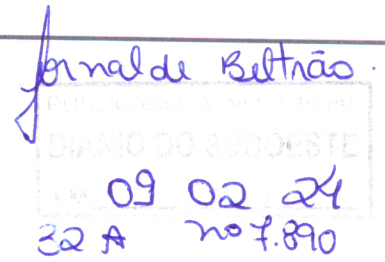 Jornal de Beltrão.
DIÁRIO DO SUDOESTE
09 02 24
32 A nº 7.890